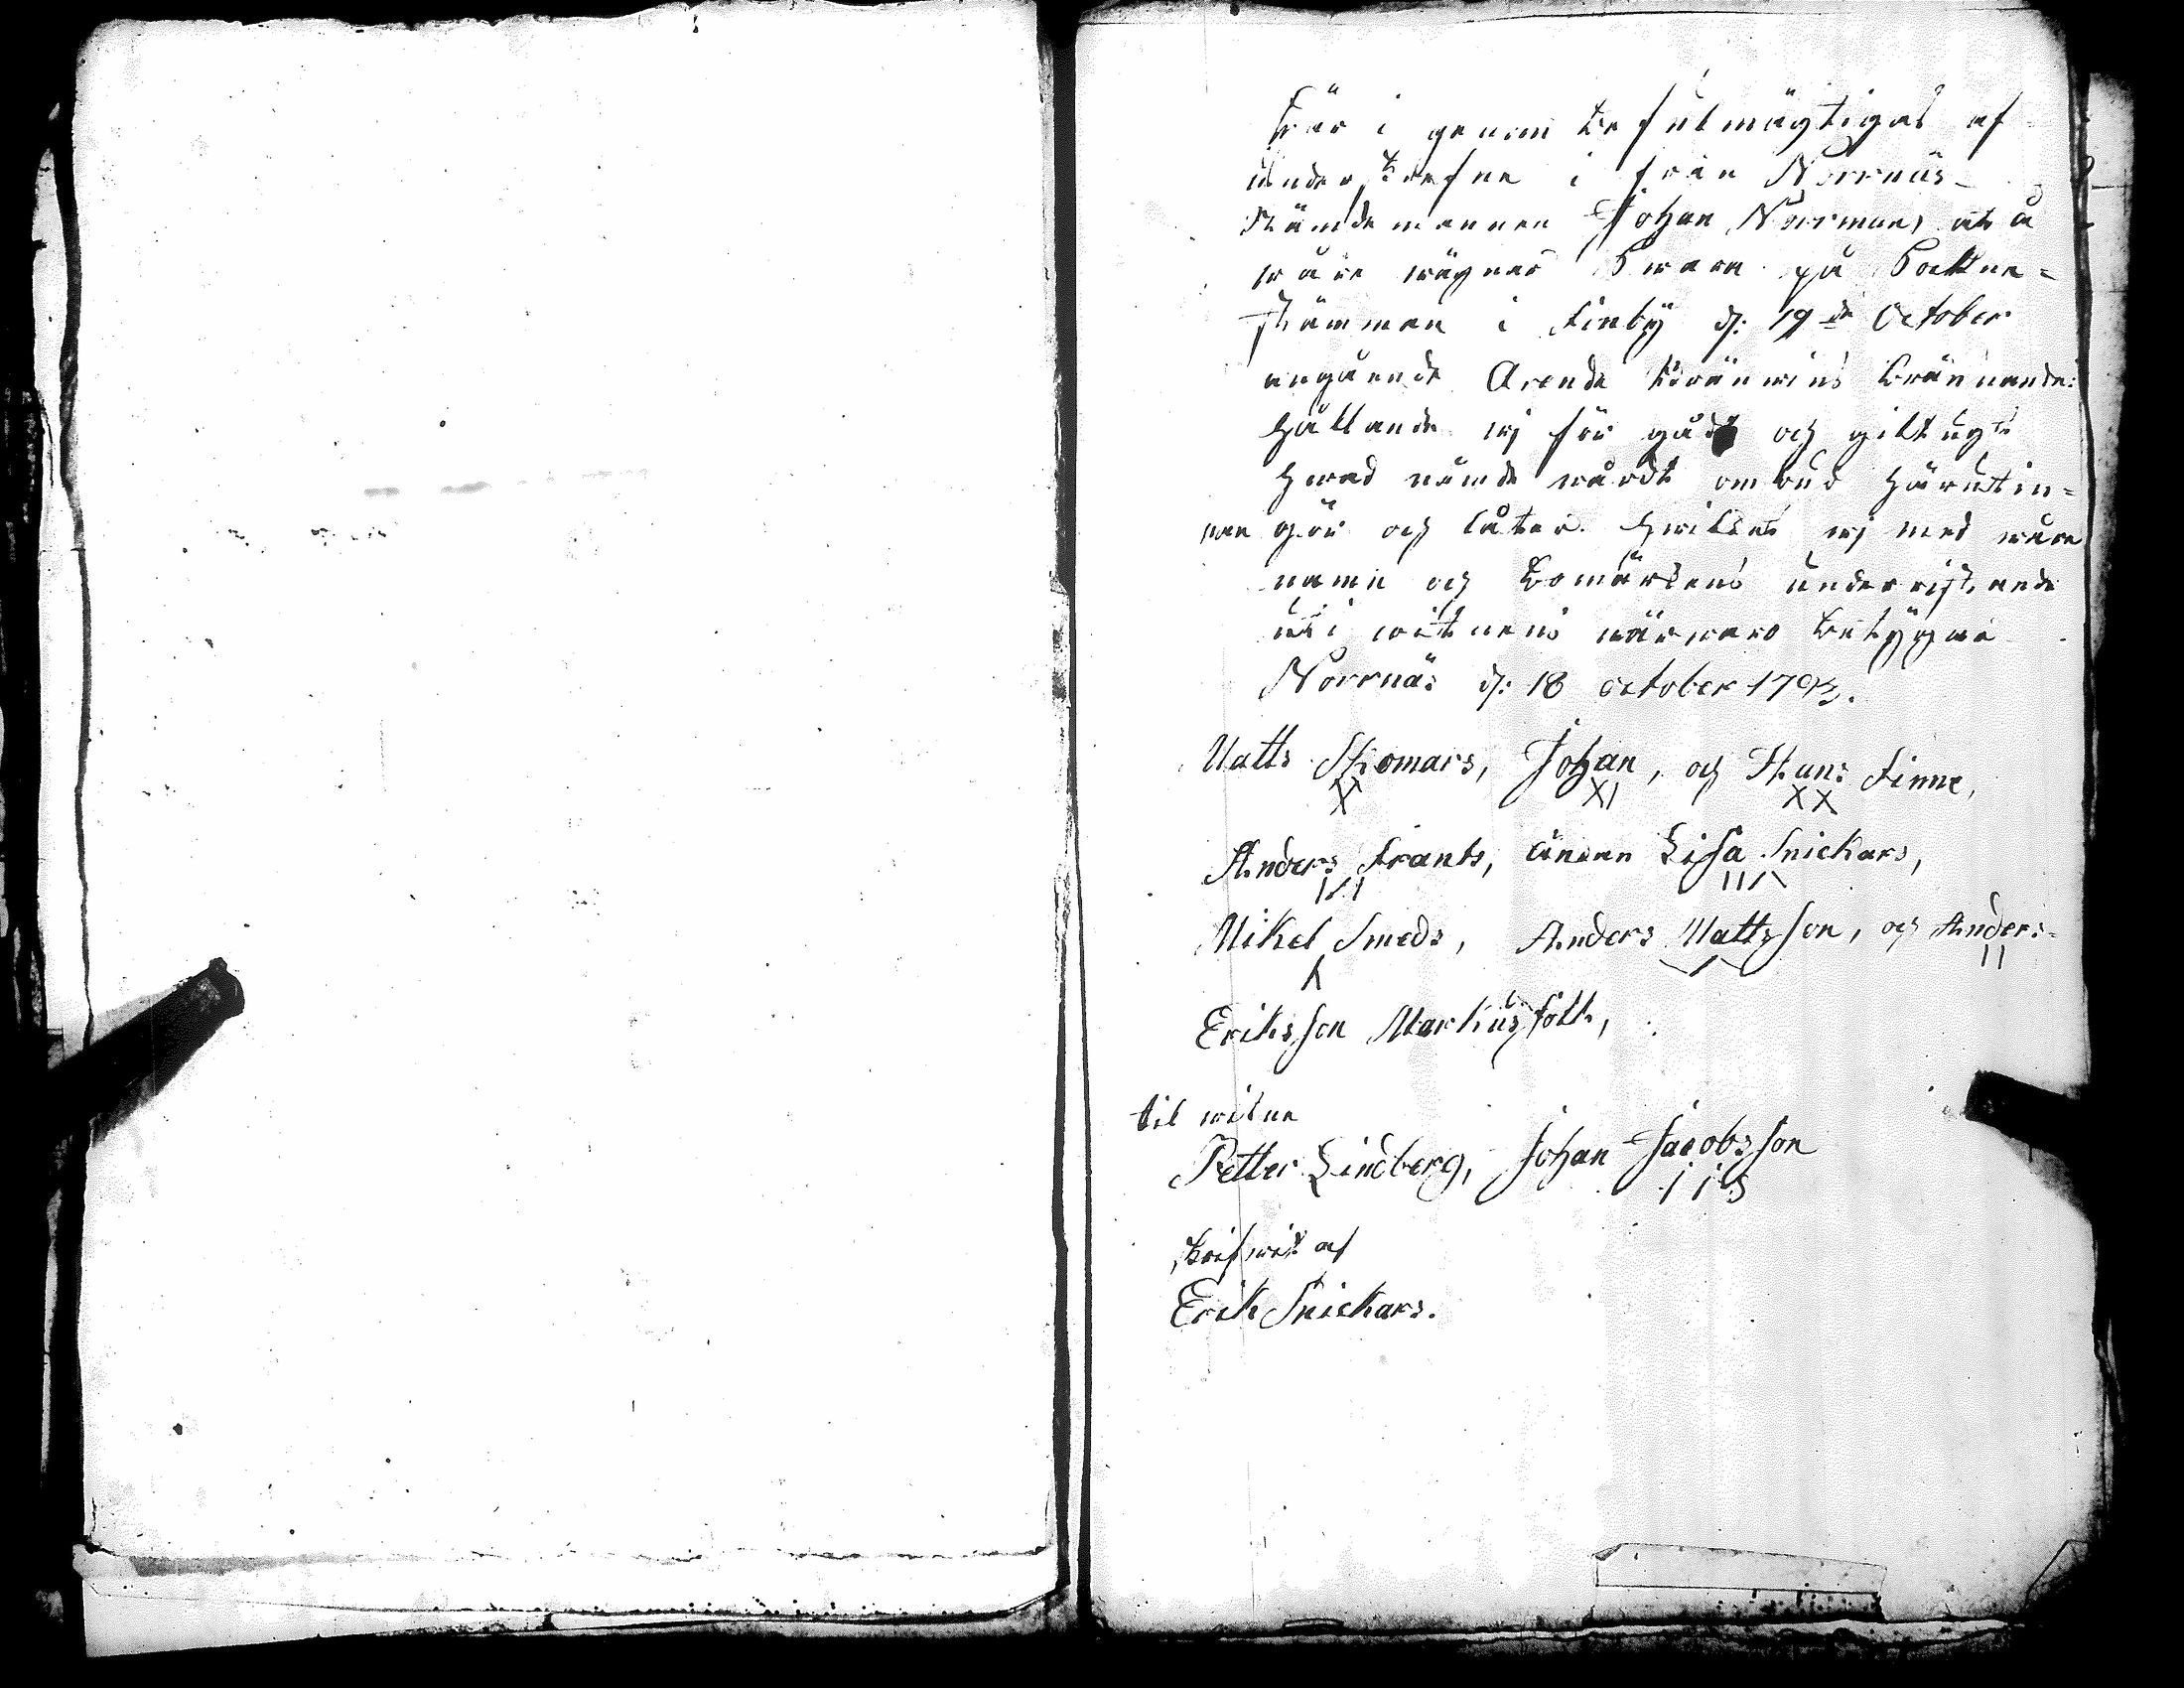 Här i genom befulmägtigas af
underskrefne i från Norrnäs
Nämdemannen Johan Norrman, at å
wåre wägnar Swara på Sockne=
stämman i Finby d: 19de October
angående Arende Bränwins brännande:
hållande wj för gådt och giltugt
hwad nämde wårdt ombud härutin=
nan gör och låter. hwilket wj med wåre
namn och bomärkens underristande
uti witnens närwaro betygar
Norrnäs d: 18 october 1793.
Matts Thomars, Johan, och Hans Finne,
X XI XX
Anders Frants, änkan Lisa Snickars,
Mikel Smeds, Anders Mattsson, och Anders
II
Eriksson Markusfolk,
til witne
Petter Lindberg, Johan Jacobsson
skrifwit af
Erik Snickars.